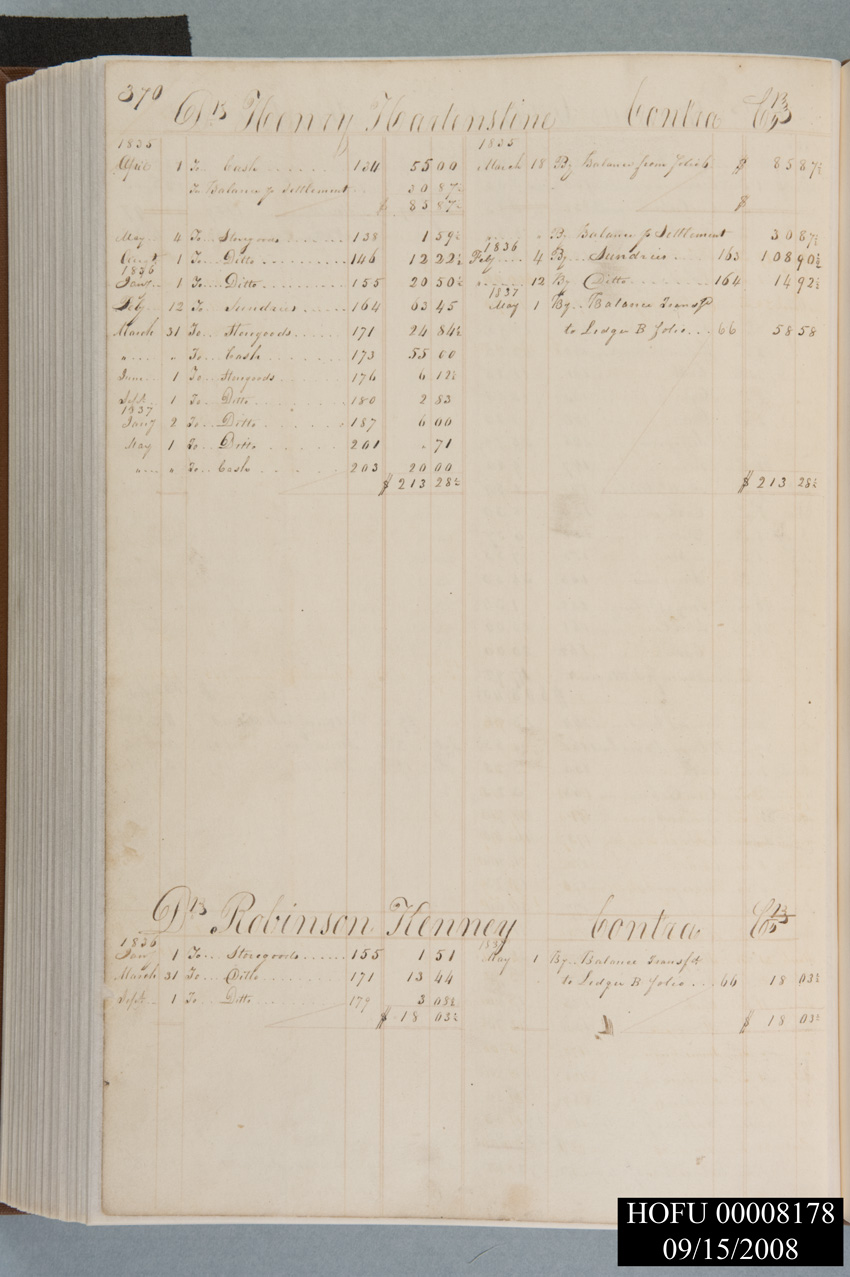 370
Drs Henry Hartenstine Contra Crs
1835 1835
April 1 To Cash ...... 134 55 00 March 18 By Balance from Folio 6 $ 85 87½
To Balance p Settlement .. 30 87½
$ 85 87½ $
May.. 4 To.. Storegoods ..... 138 1 59½ " .... " By Balance p Settlement 30 87½
1836
1 To... Ditto ....... 146 12 22½ Feby.... 4 By... Sundries .... 163 108 90½
1836
Jany.. 1 To.... Ditto ....... 155 20 50½ " ..... 12 By Ditto ...... 164 14 92½
1837
Feby. 12 To... Sundries ..... 164 63 45 May 1 By.. Balance Transfd
March 31 To... Storegoods .... 171 24 84½ to Ledger B Folio... 66 58 58
" .... " To.. Cash ...... 173 55 00
June... 1 To... Storegoods ..... 176 6 12½
Sept.. 1 To.. Ditto ....... 180 2 83
1837
Jany 2 To... Ditto ...... 187 6 00
May 1 To.. Ditto ...... 201 " 71
" .... " To... Cash ...... 203 20 00
$ 213 28½ $ 213 28½
Drs Robinson Kenney Contra Crs
1836
Jany 1 To... Storegoods ...... 155 1 51 May 1 By.. Balance Transfd
March 31 To... Ditto ....... 171 13 44 to Ledger B Folio ... 66 18 03½
Sept.. 1 To... Ditto ...... 179 3 08½
$ 18 03½ $ 18 03½
HOFU 00008178
09/15/2008